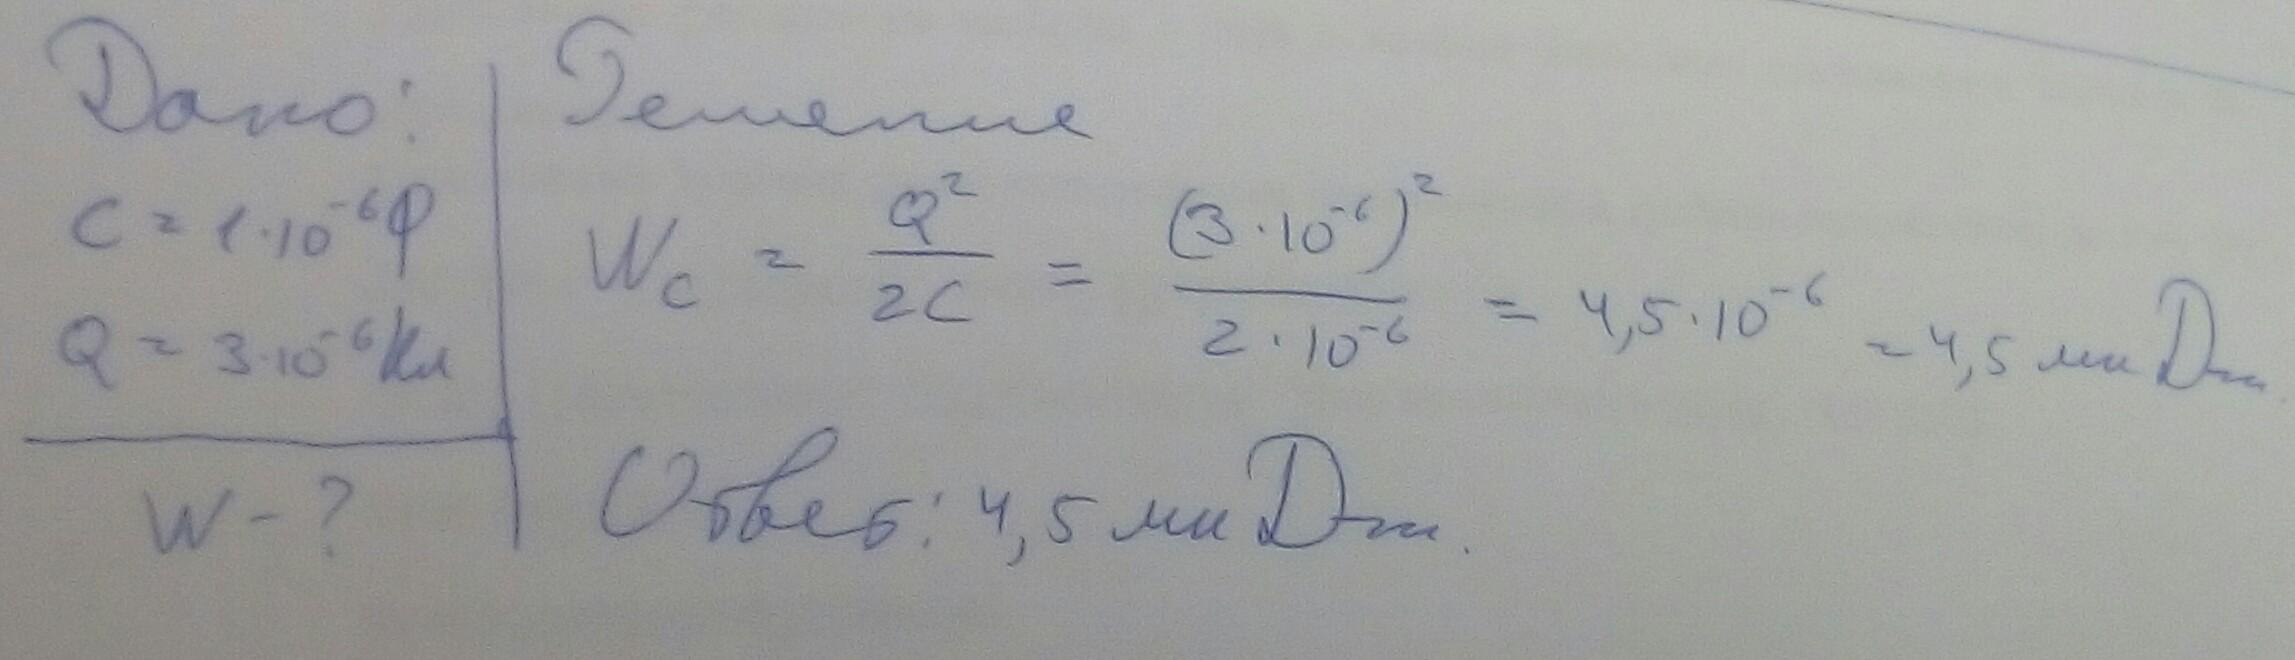 Дано:
C = 1·10⁻⁶ Ф
Q = 3·10⁻⁶ Кл
W - ?
Решение
W_C = Q²/2C = (3·10⁻⁶)²/2·10⁻⁶ = 4,5·10⁻⁶ = 4,5 мк Дж.
Ответ: 4,5 мк Дж.